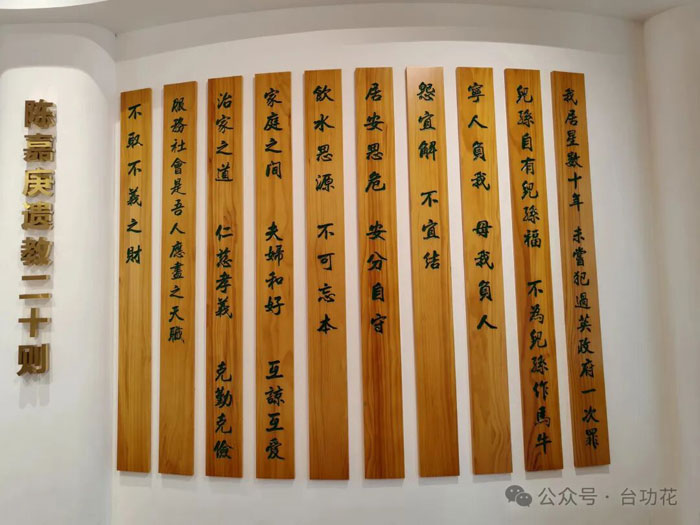 陈嘉庚遗教二十则
我居星數十年 未嘗犯過英政府一次罪
兒孫自有兒孫福 不為兒孫作馬牛
寧人負我 毋我負人
怨宜解 不宜結
居安思危 安分自守
飲水思源 不可忘本
家庭之间 夫婦和好 互諒互愛
治家之道 仁慈孝義 克勤克儉
服務社會是吾人應盡之天職
不取不義之財
公众号·台功花